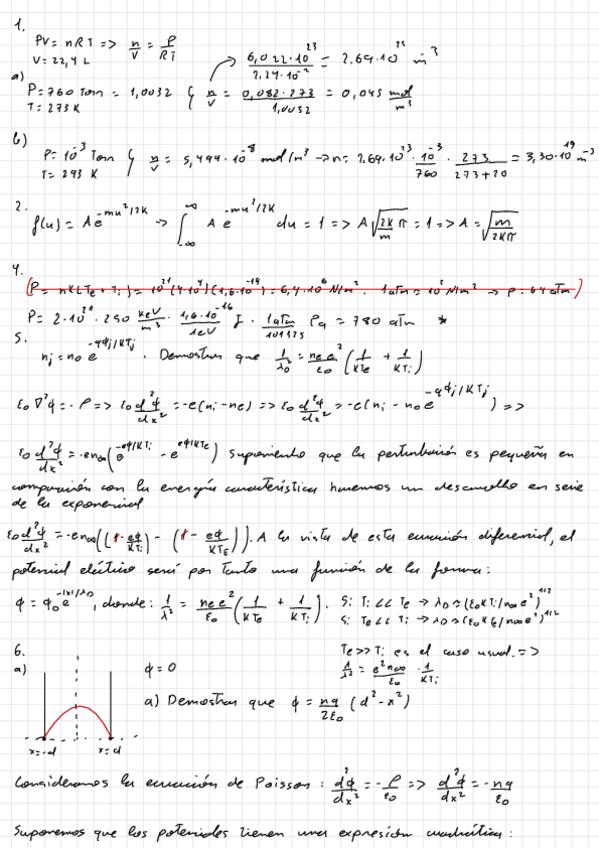 1.
PV = nRT => n/V = P/RT
V = 22,4 L
6,022·10^23 / 2.24·10^-2 = 2.69·10^25 m^-3
a)
P = 760 Torr = 1,0032 } n/V = 0,082·273 / 1,0032 = 0,045 mol/m^3
T = 273 K
b)
P = 10^-3 Torr } n/V = 5,494·10^-8 mol/m^3 → n = 2.69·10^23 · 10^-3/760 · 273/(273+20) = 3,30·10^19 m^-3
T = 293 K
2.
f(u) = A e^(-mu^2/2K) → ∫_-∞^∞ A e^(-mu^2/2K) du = 1 => A √(2Kπ/m) = 1 => A = √(m/2Kπ)
4.
(P = nK(Te + Ti) = 10^21 (4·10^4)(1,6·10^-19) = 6,4·10^6 N/m^2. 1 atm = 10^5 N/m^2 → P = 64 atm)
P = 2·10^21 · 250 keV/m^3 · 1,6·10^-16 / 1eV J · 1 atm / 101325 Pa = 780 atm *
5.
nj = n0 e^(-qϕj/KTj). Demostrar que 1/λD^2 = ne e^2/ε0 (1/KTe + 1/KTi)
ε0 ∇^2 ϕ = -ρ => ε0 d^2ϕ/dx^2 = -e(ni - ne) => ε0 d^2ϕ/dx^2 = -e(ni - n0 e^(-qϕj/KTj)) =>
ε0 d^2ϕ/dx^2 = -en∞(e^(-eϕ/KTi) - e^(eϕ/KTe)) Suponiendo que la perturbación es pequeña en
comparación con la energía característica hacemos un desarrollo en serie
de la exponencial
ε0 d^2ϕ/dx^2 = -en∞((1 - eϕ/KTi) - (1 - eϕ/KTe)). A la vista de esta ecuación diferencial, el
potencial eléctrico será por tanto una función de la forma:
ϕ = ϕ0 e^(-|x|/λD), donde: 1/λ^2 = ne e^2/ε0 (1/KTe + 1/KTi). Si Ti << Te → λD ≈ (ε0 KTi/n∞e^2)^1/2
Si Te << Ti → λD ≈ (ε0 KTe/n∞e^2)^1/2
6.
Te >> Ti es el caso usual. =>
1/λ^2 = e^2 n∞/ε0 · 1/KTi
a)
ϕ = 0
a) Demostrar que ϕ = nq/2ε0 (d^2 - x^2)
x=-d x=d
Consideramos la ecuación de Poisson: d^2ϕ/dx^2 = -ρ/ε0 => d^2ϕ/dx^2 = -nq/ε0
Suponemos que los potenciales tienen una expresión cuadrática: